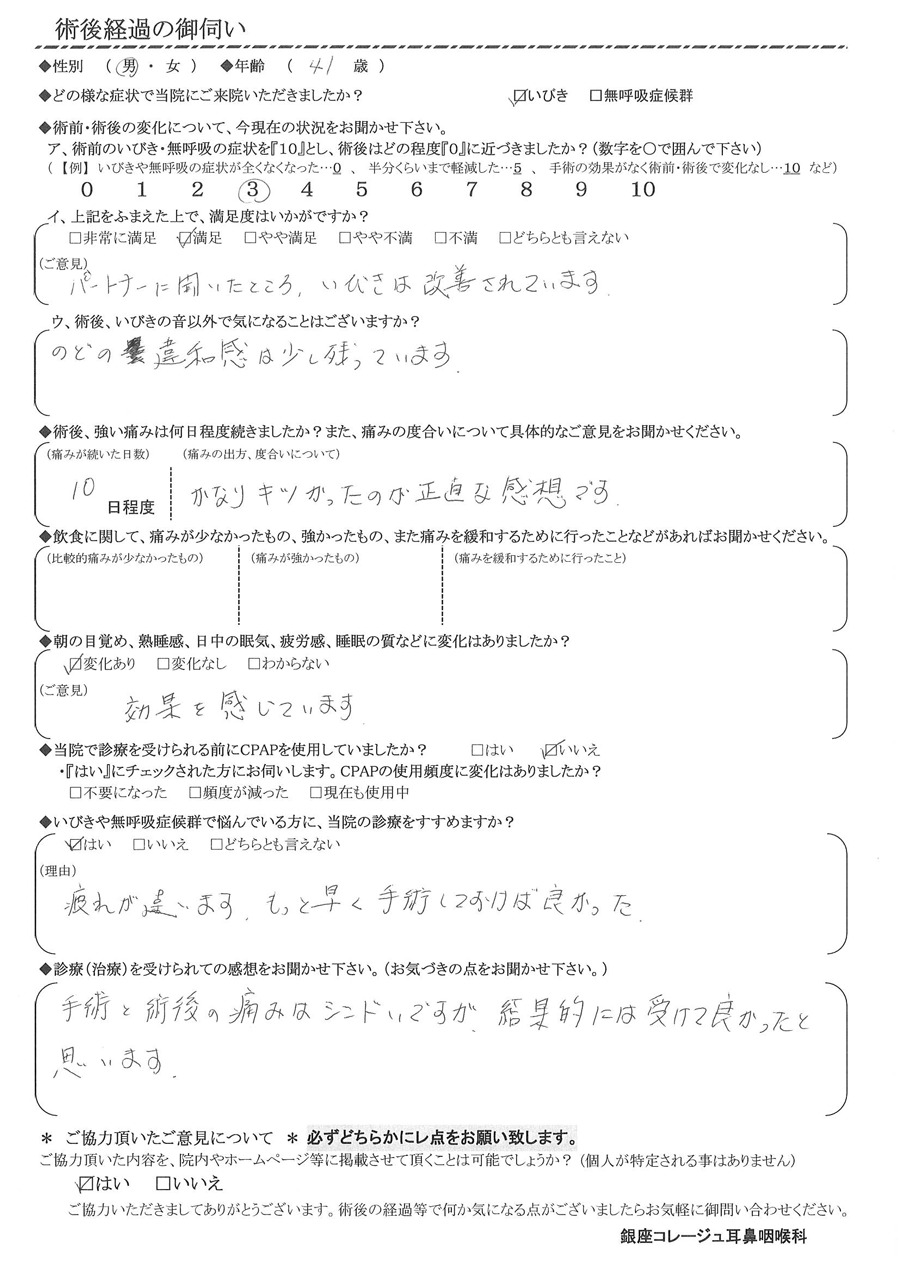 術後経過の御伺い
◆性別 （ 男 ・ 女 ） ◆年齢 （ 41 歳 ）
◆どの様な症状で当院にご来院いただきましたか？ ☑いびき □無呼吸症候群
◆術前・術後の変化について、今現在の状況をお聞かせ下さい。
ア、術前のいびき・無呼吸の症状を『10』とし、術後はどの程度『0』に近づきましたか？（数字を○で囲んで下さい）
（ 【例】 いびきや無呼吸の症状が全くなくなった…0 、 半分くらいまで軽減した…5 、 手術の効果がなく術前・術後で変化なし…10 など）
0 1 2 3 4 5 6 7 8 9 10
イ、上記をふまえた上で、満足度はいかがですか？
□非常に満足 ☑満足 □やや満足 □やや不満 □不満 □どちらとも言えない
（ご意見）
パートナーに聞いたところ、いびきは改善されています.
ウ、術後、いびきの音以外で気になることはございますか？
のどの違和感は少し残っています.
◆術後、強い痛みは何日程度続きましたか？また、痛みの度合いについて具体的なご意見をお聞かせください。
（痛みが続いた日数） （痛みの出方、度合いについて）
10 日程度 かなりキツかったのが正直な感想です.
◆飲食に関して、痛みが少なかったもの、強かったもの、また痛みを緩和するために行ったことなどがあればお聞かせください。
（比較的痛みが少なかったもの） （痛みが強かったもの） （痛みを緩和するために行ったこと）
◆朝の目覚め、熟睡感、日中の眠気、疲労感、睡眠の質などに変化はありましたか？
☑変化あり □変化なし □わからない
（ご意見）
効果を感じています.
◆当院で診療を受けられる前にCPAPを使用していましたか？ □はい ☑いいえ
・『はい』にチェックされた方にお伺いします。CPAPの使用頻度に変化はありましたか？
□不要になった □頻度が減った □現在も使用中
◆いびきや無呼吸症候群で悩んでいる方に、当院の診療をすすめますか？
☑はい □いいえ □どちらとも言えない
（理由）
疲れが違います. もっと早く手術しておけば良かった.
◆診療（治療）を受けられての感想をお聞かせ下さい。（お気づきの点をお聞かせ下さい。）
手術と術後の痛みはシンドいですが、結果的には受けて良かったと
思います.
＊ ご協力頂いたご意見について ＊ 必ずどちらかにレ点をお願い致します。
ご協力頂いた内容を、院内やホームページ等に掲載させて頂くことは可能でしょうか？（個人が特定される事はありません）
☑はい □いいえ
ご協力いただきましてありがとうございます。術後の経過等で何か気になる点がございましたらお気軽に御問い合わせください。
銀座コレージュ耳鼻咽喉科